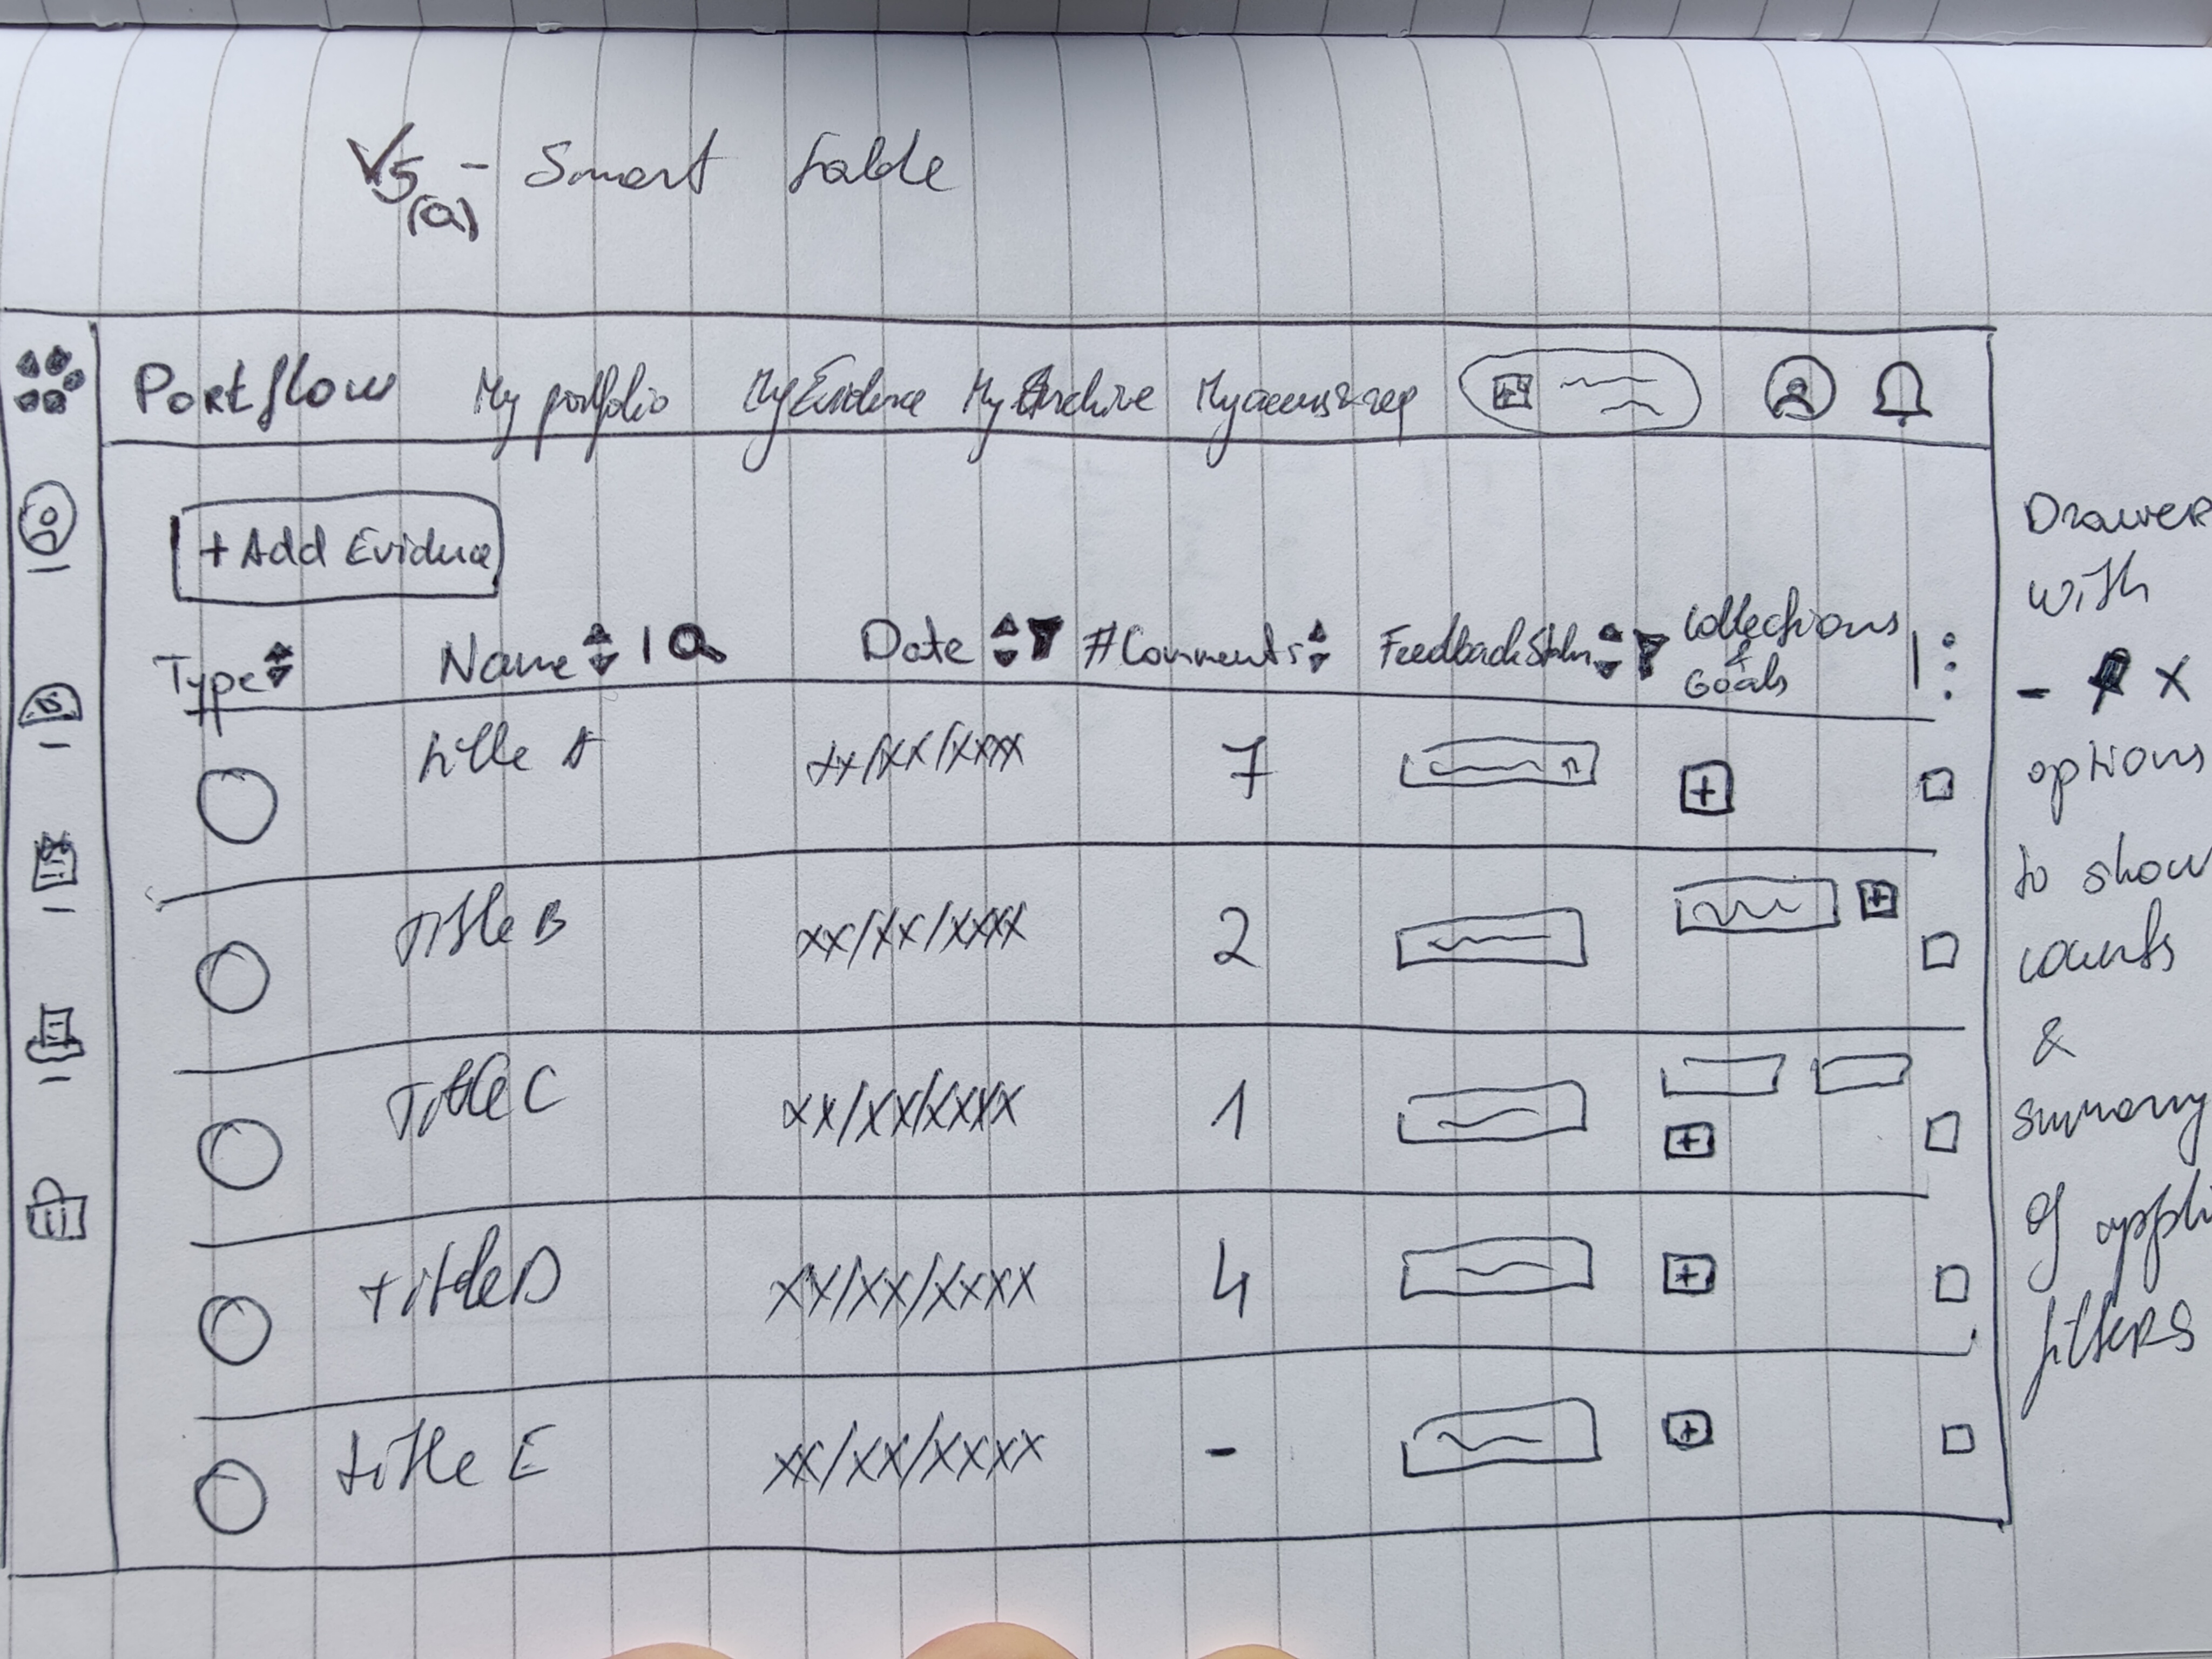 V5 - Smart table
(a)
Portflow My portfolio My Evidence My Archive
+ Add Evidence
Type Name Date #Comments Feedback Collections & Goals
title A xx/xx/xxxx 7
Title B xx/xx/xxxx 2
Title C xx/xx/xxxx 1
title D xx/xx/xxxx 4
title E xx/xx/xxxx -
Drawer
with
- X
options
to show
counts
&
summary
of appli
filters